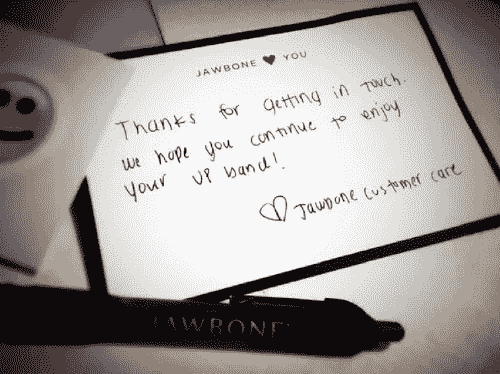 JAWBONE ♥ YOU
Thanks for getting in touch.
we hope you continue to enjoy
your UP band!
♡ Jawbone customer care
JAWBONE